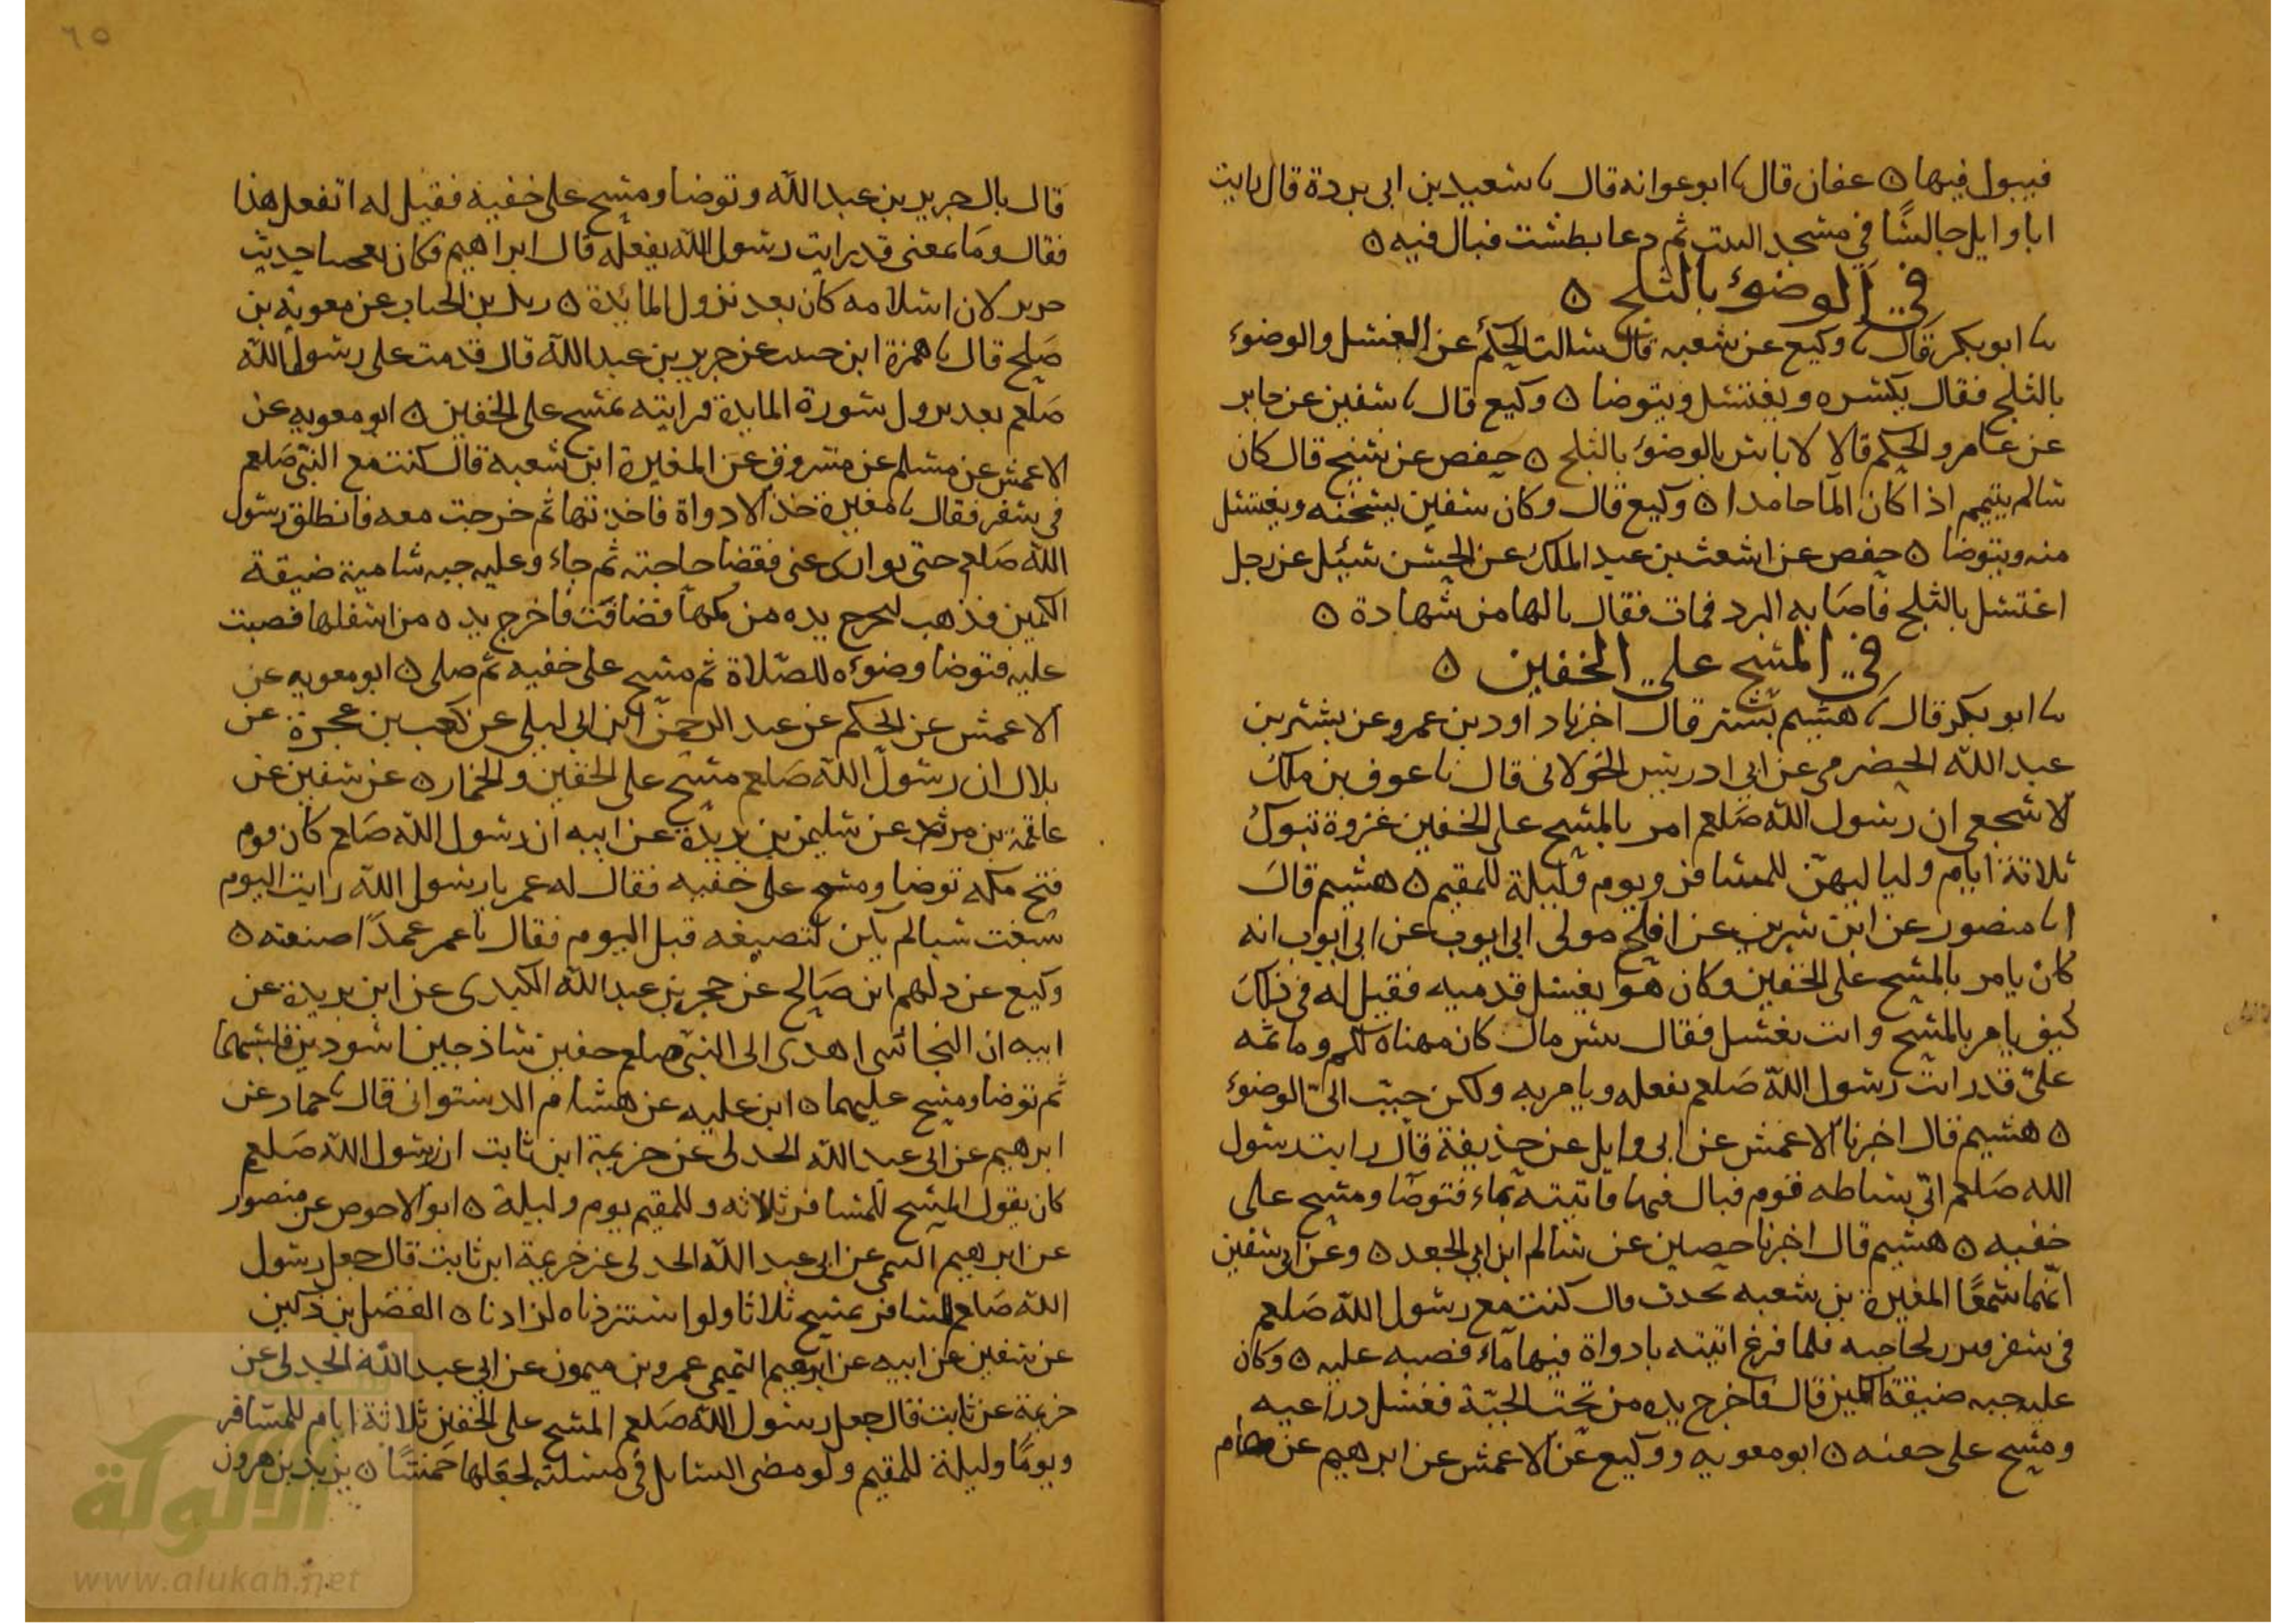 فيبول فيها ٥ عفان قال نا ابو عوانه قال نا سعيد بن ابى بردة قال رايت
ابا وايل جالسًا في مسجد البيت ثم دعا بطست فبال فيه ٥
في الوضوء بالثلج ٥
نا ابو بكر قال نا وكيع عن شعبه قال سالت الحكم عن الغسل والوضوء
بالثلج فقال يكسره ويغتسل ويتوضا ٥ وكيع قال نا سفين عن جابر
عن عامر والحكم قالا لا باس بالوضوء بالثلج ٥ حفص عن شيخ قال كان
سالم يتيمم اذا كان الما جامدا ٥ وكيع قال وكان سفين يسخنه ويغتسل
منه ويتوضا ٥ حفص عن اشعث بن عبد الملك عن الحسن سئيل عن رجل
اغتسل بالثلج فاصابه البرد فمات فقال يا لها من شهادة ٥
في المسح على الخفين ٥
نا ابو بكر قال نا هشيم بن بشير قال اخبرنا داود بن عمرو عن بسر بن
عبد الله الحضرمي عن ابي ادريس الخولانى قال نا عوف بن ملك
لاشجعى ان رسول الله صلعم امر بالمسح على الخفين غزوة تبوك
ثلاثة ايام ولياليهن للمسافر ويوم وليلة للمقيم ٥ هشيم قال
انا منصور عن ابن سيرين عن افلح مولى ابى ايوب عن ابى ايوب انه
كان يامر بالمسح على الخفين وكان هو يغسل قدميه فقيل له فى ذلك
كيف يامر بالمسح وانت تغسل فقال بئس مالى ان كان مهناه لكم وماثمه
علىّ قد رايت رسول الله صلعم يفعله ويامر به ولكن حبب الىّ الوضوء
٥ هشيم قال اخبرنا الاعمش عن ابى وايل عن حذيفة قال رايت رسول
الله صلعم اتى سباطه قوم فبال فيها فاتيته بماء فتوضا ومسح على
خفيه ٥ هشيم قال اخبرنا حصين عن سالم ابن ابي الجعد ٥ وعن ابى سفين
انهما سمعا المغيرة بن شعبه يحدث قال كنت مع رسول الله صلعم
فى سفر فبرز لحاجته فلما فرغ اتيته باداوة فيها ماء فصبه عليه ٥ وكان
عليه جبه ضيقة الكمين قال فاخرج يده من تحت الجبّة فغسل ذراعيه
ومسح على خفيه ٥ ابو معويه ووكيع عن الاعمش عن ابرهيم عن همام
٦٥
قال بال جرير بن عبد الله وتوضا ومسح على خفيه فقيل له اتفعل هذا
فقال وما يمنعنى قد رايت رسول الله يفعله قال ابراهيم فكان يعجبنا حديث
جرير لان اسلامه كان بعد نزول المائدة ٥ زيد بن الحباب عن معوية بن
صلح قال نا ضمرة ابن حبيب عن جرير بن عبد الله قال قدمت على رسول الله
صلعم بعد نزول سورة المايدة فرايته يمسح على الخفين ٥ ابو معويه عن
الاعمش عن مسلم عن مسروق عن المغيرة ابن شعبه قال كنت مع النبى صلعم
فى سفر فقال يا مغيرة خذ الادواة فاخذتها ثم خرجت معه فانطلق رسول
الله صلعم حتى توارى عنى فقضا حاجته ثم جاء وعليه جبه شامية ضيقة
الكمين فذهب ليخرج يده من كمها فضاقت فاخرج يده من اسفلها فصببت
عليه فتوضا وضوءه للصلاة ثم مسح على خفيه ثم صلى ٥ ابو معويه عن
الاعمش عن الحكم عن عبد الرحمن ابن ابى ليلى عن كعب بن عجرة عن
بلال ان رسول الله صلعم مسح على الخفين والخمار ٥ عن سفين عن
علقمة بن مرثد عن سليمن بن بريدة عن ابيه ان رسول الله صلعم كان يوم
فتح مكه توضا ومسح على خفيه فقال له عمر يا رسول الله رايت اليوم
صنعت شيا لم تكن تصنعه قبل اليوم فقال يا عمر عمدًا صنعته ٥
وكيع عن دلهم ابن صالح عن حجر بن عبد الله الكندى عن ابن بريدة عن
ابيه ان النجاشى اهدى الى النبى صلعم خفين ساذجين اسودين فلبسهما
ثم توضا ومسح عليهما ٥ ابن عليه عن هشام الدستوانى قال نا حماد عن
ابرهيم عن ابى عبد الله الجدلى عن خزيمة ابن ثابت ان رسول الله صلعم
كان يقول المسح للمسافر ثلاثه وللمقيم يوم وليلة ٥ ابو الاحوص عن منصور
عن ابرهيم التيمى عن ابى عبد الله الجدلى عن خزيمة ابن ثابت قال جعل رسول
الله صلعم للمسافر يمسح ثلاثا ولو استزدناه لزادنا ٥ الفضل بن دكين
عن سفين عن ابيه عن ابرهيم التيمى عمرو بن ميمون عن ابي عبد الله الجدلى عن
خزيمة عن ثابت قال جعل رسول الله صلعم المسح على الخفين ثلاثة ايام للمسافر
ويومًا وليلة للمقيم ولو مضى السايل فى مسئلته لجعلها خمسًا ٥ يزيد بن هرون
الألوكة
www.alukah.net